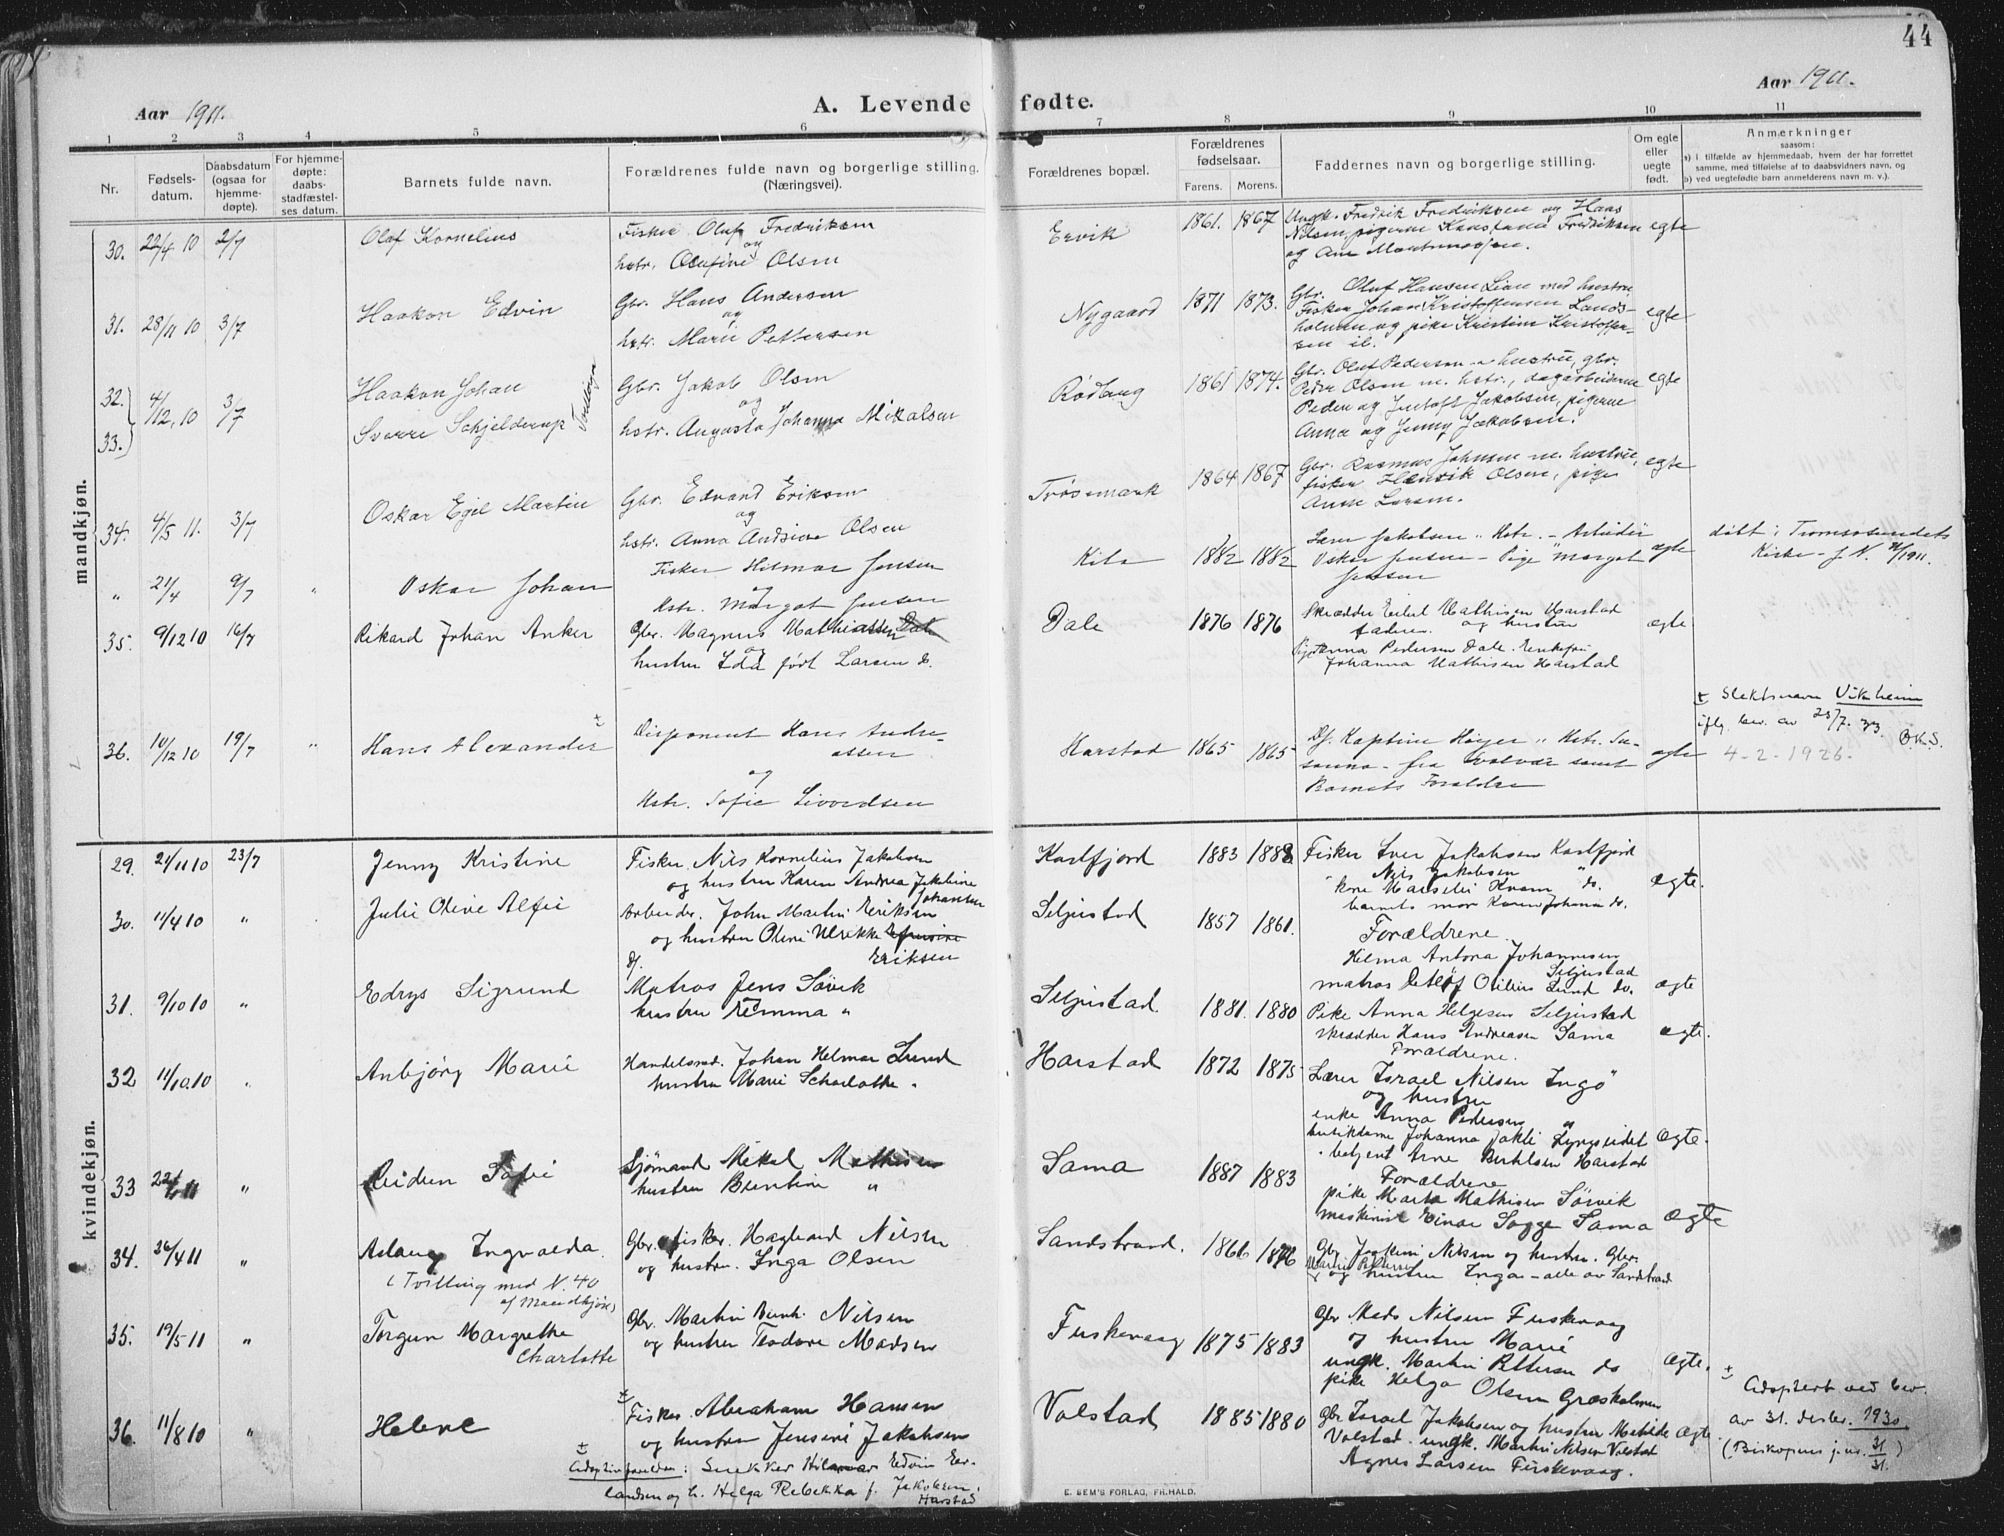 44
Aar 1911.
A. Levende fødte.
Aar 1911.
1 2 3 4 5 6 7 8 9 10 11
Nr.
Fødsels-
datum.
Daabsdatum
(ogsaa for
hjemme-
døpte).
For hjemme-
døpte:
daabs-
stadfæstel-
ses datum.
Barnets fulde navn.
Forældrenes fulde navn og borgerlige stilling.
(Næringsvei).
Forældrenes bopæl.
Forældrenes
fødselsaar.
Farens. Morens.
Faddernes navn og borgerlige stilling.
Om egte
eller
uegte
født.
Anmerkninger
saasom:
a) i tilfælde av hjemmedaab, hvem der har forrettet
samme, med tilføielse af to daabsvidners navn, og
b) ved uegtefødte barn anmelderens navn m. v.).
mandkjøn.
30. 22/4 10 2/7 Olaf Kornelius
Fisker Oluf Fredriksen
og
hstr. Olufine Olsen
Ervik 1861. 1867
Ungk. Fredrik Fredriksen og Hans
Nilsen, pigerne Konstance Fredriksen
og Ane
egte
31. 28/11 10 3/7 Haakon Edvin
Gbr. Hans Andersen
og
hstr. Marie Pettersen
Nygaard 1871 1873.
Gbr. Oluf Hansen Lian med hustru
Fisker Johan Kristoffersen Lands-
holmen og pike Kristine Kristoffer-
sen ib.
egte
32. 33. 4/12, 10 3/7 Haakon Johan
Sverre Schjelderup
Tvillinger
Gbr. Jakob Olsen
og
hstr. Augusta Johanna Mikalsen
Rødbug 1861 1874.
Gbr. Oluf Pedersen m hustru, gbr.
Peder Olsen m. hstr., dagarbeiderne
Peder og Gustaft Jakobsen, pigerne
Anna og Jenny Jakobsen.
egte
34. 4/5 11. 3/7 Oskar Egil Martin
Gbr. Edvard Eriksen
og
hstr. Anna Andsine Olsen
Trøssemark 1864 1867
Gbr. Rasmus Johnsen m. hustru,
fisker Henrik Olsen, pige
Anne Larsen.
egte
" 21/4 9/7 " Oskar Johan
Fisker Hilmar Jensen
og
Hstr. Margot Jensen
Kila 1882 1882
Lærer Jakobsen " Hstr. - Arbeider
Oskar Jensen - Pige " Margot
Jensen
egte
døbt i Tromsøsundets
Kirke - J. N. /1911.
35. 9/12 10 16/7 Rikard Johan Anker
Gbr. Magnus Mathiassen Dale
og
hustru Ida født Larsen do.
Dale 1876 1876
Skrædder Mathisen Harstad
faderen. og hustru
Pige Anna Pedersen Dale. Enkefru
Johanna Mathisen Harstad
egte
36. 10/12 10 19/7 " Hans Alexander ±
Disponent Hans Andre-
assen
og
Hstr. Sofie Sivertsen
Harstad 1865 1865
Df. Kaptein Høyer " Hstr. Su-
sanna - fra Svolvær samt
Barnets Forældre
egte
± Slektsnavn Vikaheim
iflg. bev. av 25/7. 33.
4-2-1926.
kvindekjøn.
29. 21/11 10 23/7 Jenny Kristine
Fisker Nils Kornelius Jakobsen
og hustru Karen Andrea Jakobine
Johansen
Kasfjord 1883 1888
Fisker Iver Jakobsen Kasfjord
" Nils Jakobsen "
kone Marselie Kvam do.
barnets mor Karen Johanna do.
egte.
30. 11/4 10 " Julie Oline Alfie
Arbeider. John Martin Eriksen
og hustru Oline Ulrikke
Eriksen
Seljestad 1857 1861.
Forældrene.
Hilma Antona Johannesen
Seljestad
matros Detlof Otilius Lund do.
egte
31. 9/10 10 " Edrys Sigrund
Df.
Matros Jens Søvik
hustru Emma "
Seljestad. 1881. 1880
Pike Anna Helgesen Seljestad
skrædder Hans Andreasen Sama
Forældrene.
egte.
32 11/10.10 " Anbjørg Marie
Handelsrd. Johan Helmar Lund
hustru Marie Scharlotte "
Harstad 1872 1875
Lærer Israel Nilsen Ingø
og hustru
enke Anna Pedersen "
butikdame Johanna Jakli Lyngseidet
betjent Arne Berthlsen Harstad
egte.
33 " Reidun Sofie
Sjømand Mikal Mathisen
hustru Berntine "
Sama 1887 1883
Forældrene
pike Marta Mathisen Sørvik
maskinist Einar Sogge Sama
egte
34. 26/4 11 " Aslaug Ingvalda.
(Tvilling med N. 40
af Mandkjøn)
Gbr. fisker. Hagbard Nilsen
og hustru. Inga Olsen
Sandstrand. 1866 1876
Gbr Joakim Nilsen og hustru. Gbr.
og hustru Inga - alle av Sandstrand
35. 19/5 11 " Torgun Margrethe
Charlotte
Gbr. Martin Bernh. Nilsen
og hustru Teodore Madsen
Fuskevaag 1875 1883
Gbr Mads Nilsen Fuskevaag
og hustru Marie
ungk. Martin Pettersen do
pike Helga Olsen Græsholmen
egte.
36. 11/8 10 " Helene
± Fisker. Abraham Hansen
og hustru Jensine Jakobsen
± Adoptivforeldre: Snekker Hilmar Edvin Er-
landsen og h. Helga Rebekka f. Jakobsen,
Harstad
Volstad 1885 1880
Gbr Israel Jakobsen og hustru Matilde
Volstad. ungk. Martin Nilsen Volstad
Agnes Larsen Fuskevaag.
egte
± Adoptert ved bev.
av 31. desbr. 1930
(Biskopens j.nr. 31/31.)
E. SEM'S FORLAG, FR.HALD.